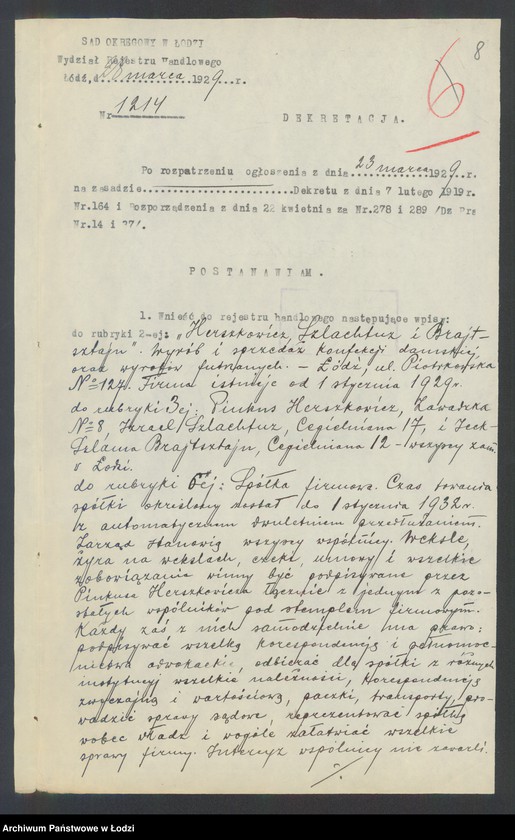 8
6
SĄD OKRĘGOWY W ŁODZI
Wydział Rejestru Handlowego
Łódź, d. 28 marca 1929 r.
Nr 1214
DEKRETACJA.
Po rozpatrzeniu ogłoszenia z dnia 23 marca 1929 r.
na zasadzie Dekretu z dnia 7 lutego 1919r.
Nr.164 i Rozporządzenia z dnia 22 kwietnia za Nr.278 i 289 /Dz Pra
Nr.14 i 37/.
POSTANAWIAM.
1. Wnieść do rejestru handlowego następujące wpisy:
do rubryki 2-ej: „Herszkowicz, Szlachtuz i Brajt-
sztajn". Wyrób i sprzedaż konfekcji damskiej
oraz wyrobów futrzanych. – Łódź, ul. Piotrkowska
№ 127. Firma istnieje od 1 stycznia 1929 r.
do rubryki 3ej: Pinkus Herszkowicz, Zawadzka
№ 8, Izrael Szlachtuz, Cegielniana 17, i Icek-
Szlama Brajtsztajn, Cegielniana 12 – wszyscy zam.
w Łodzi.
do rubryki 6ej: Spółka firmowa. Czas trwania
spółki określony został do 1 stycznia 1932 r.
z automatycznem dwuletniem przedłużaniem.
Zarząd stanowią wszyscy wspólnicy. Weksle,
żyra na wekslach, czeki, umowy i wszelkie
zobowiązania winny być podpisywane przez
Pinkusa Herszkowicza łącznie z jednym z pozo-
stałych wspólników pod stemplem firmowym.
Każdy zaś z nich samodzielnie ma prawo:
podpisywać wszelką korespondencję i pełnomoc-
nictwa adwokackie, odbierać dla spółki z różnych
instytucyj wszelkie należności, korespondencję
zwyczajną i wartościową, paczki, transporty, pro-
wadzić sprawy sądowe, reprezentować spółkę
wobec władz i wogóle załatwiać wszelkie
sprawy firmy. Intercyz wspólnicy nie zawarli.
./.
Archiwum Państwowe w Łodzi